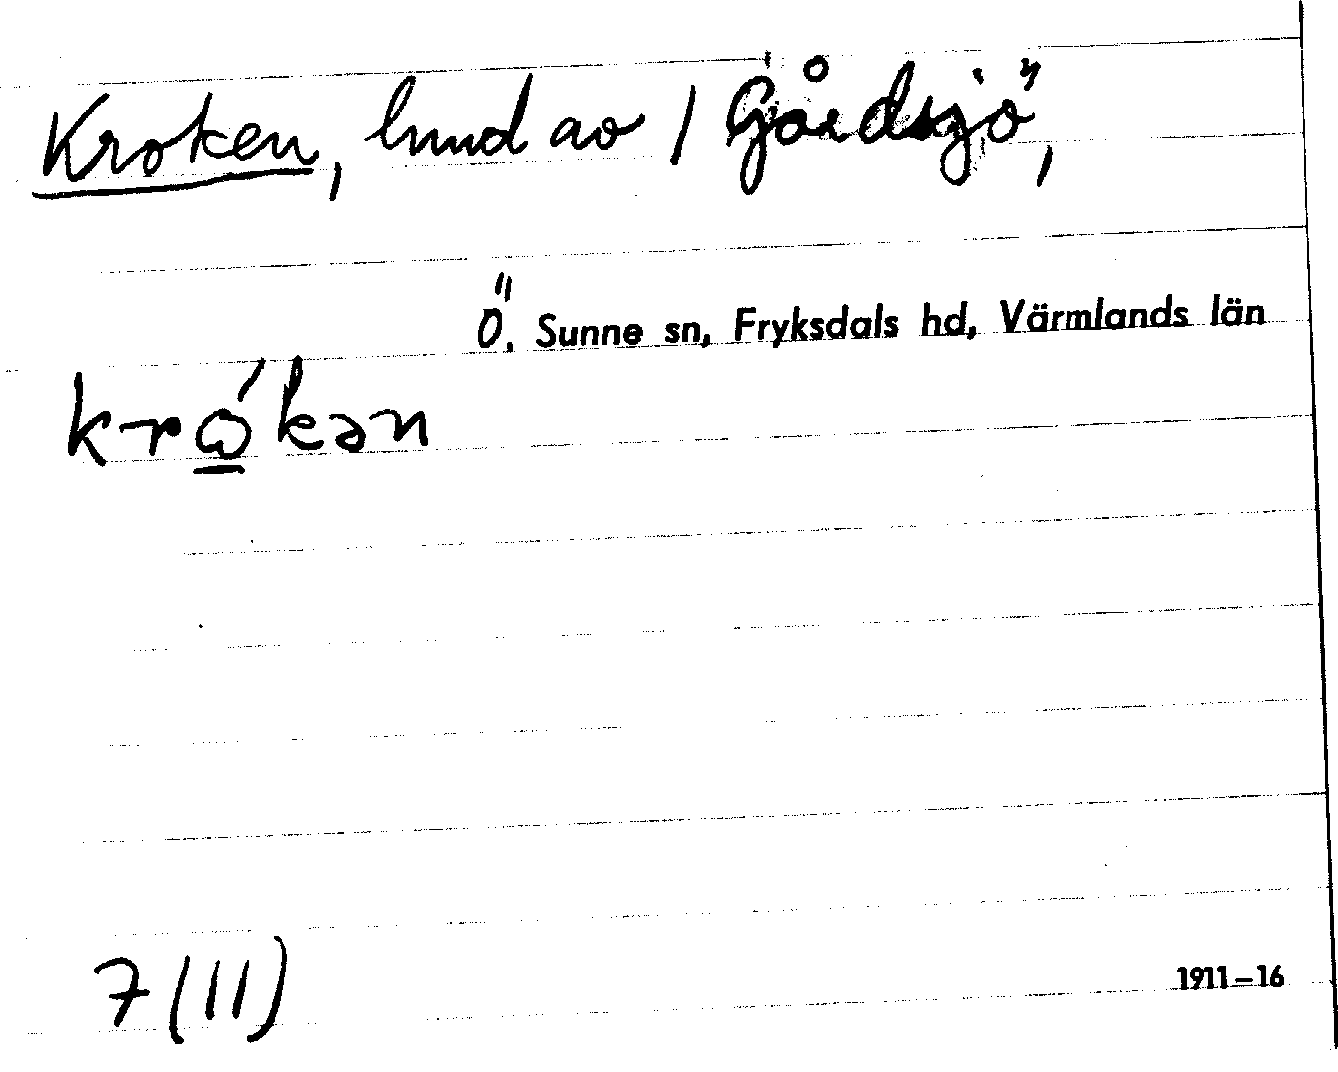 Kroken, hmd av / Gårdsjö,
Ö. Sunne sn, Fryksdals hd, Värmlands län
krώ̲kən
7 (11) 1911–16